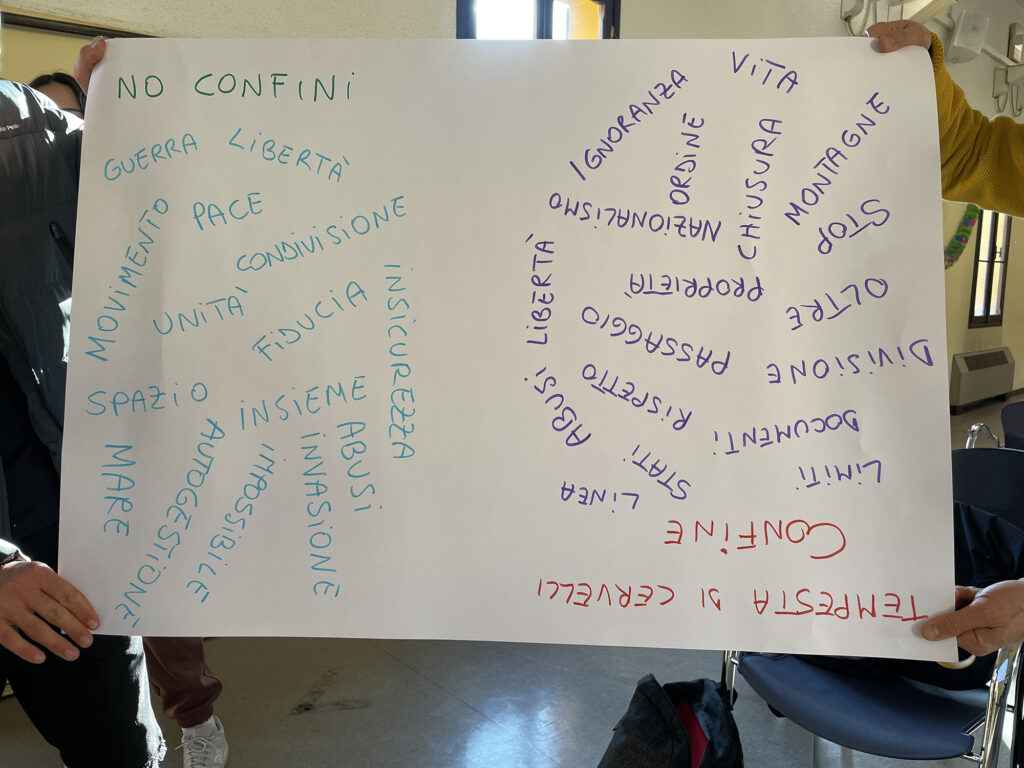 NO CONFINI
GUERRA
LIBERTÀ
MOVIMENTO
PACE
CONDIVISIONE
UNITA'
FIDUCIA
INSICUREZZA
SPAZIO
INSIEME
MARE
AUTOGESTIONE
IMPOSSIBILE
INVASIONE
ABUSI
TEMPESTA DI CERVELLI
CONFINE
LIMITI
STATI
LINEA
DOCUMENTI
RISPETTO
ABUSI
DIVISIONE
PASSAGGIO
LIBERTÀ
OLTRE
PROPRIETÀ
STOP
NAZIONALISMO
MONTAGNE
CHIUSURA
ORDINE
IGNORANZA
VITA